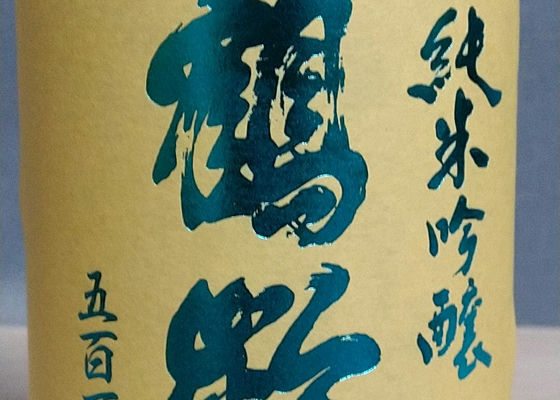 純米吟醸
鶴齢
五百万